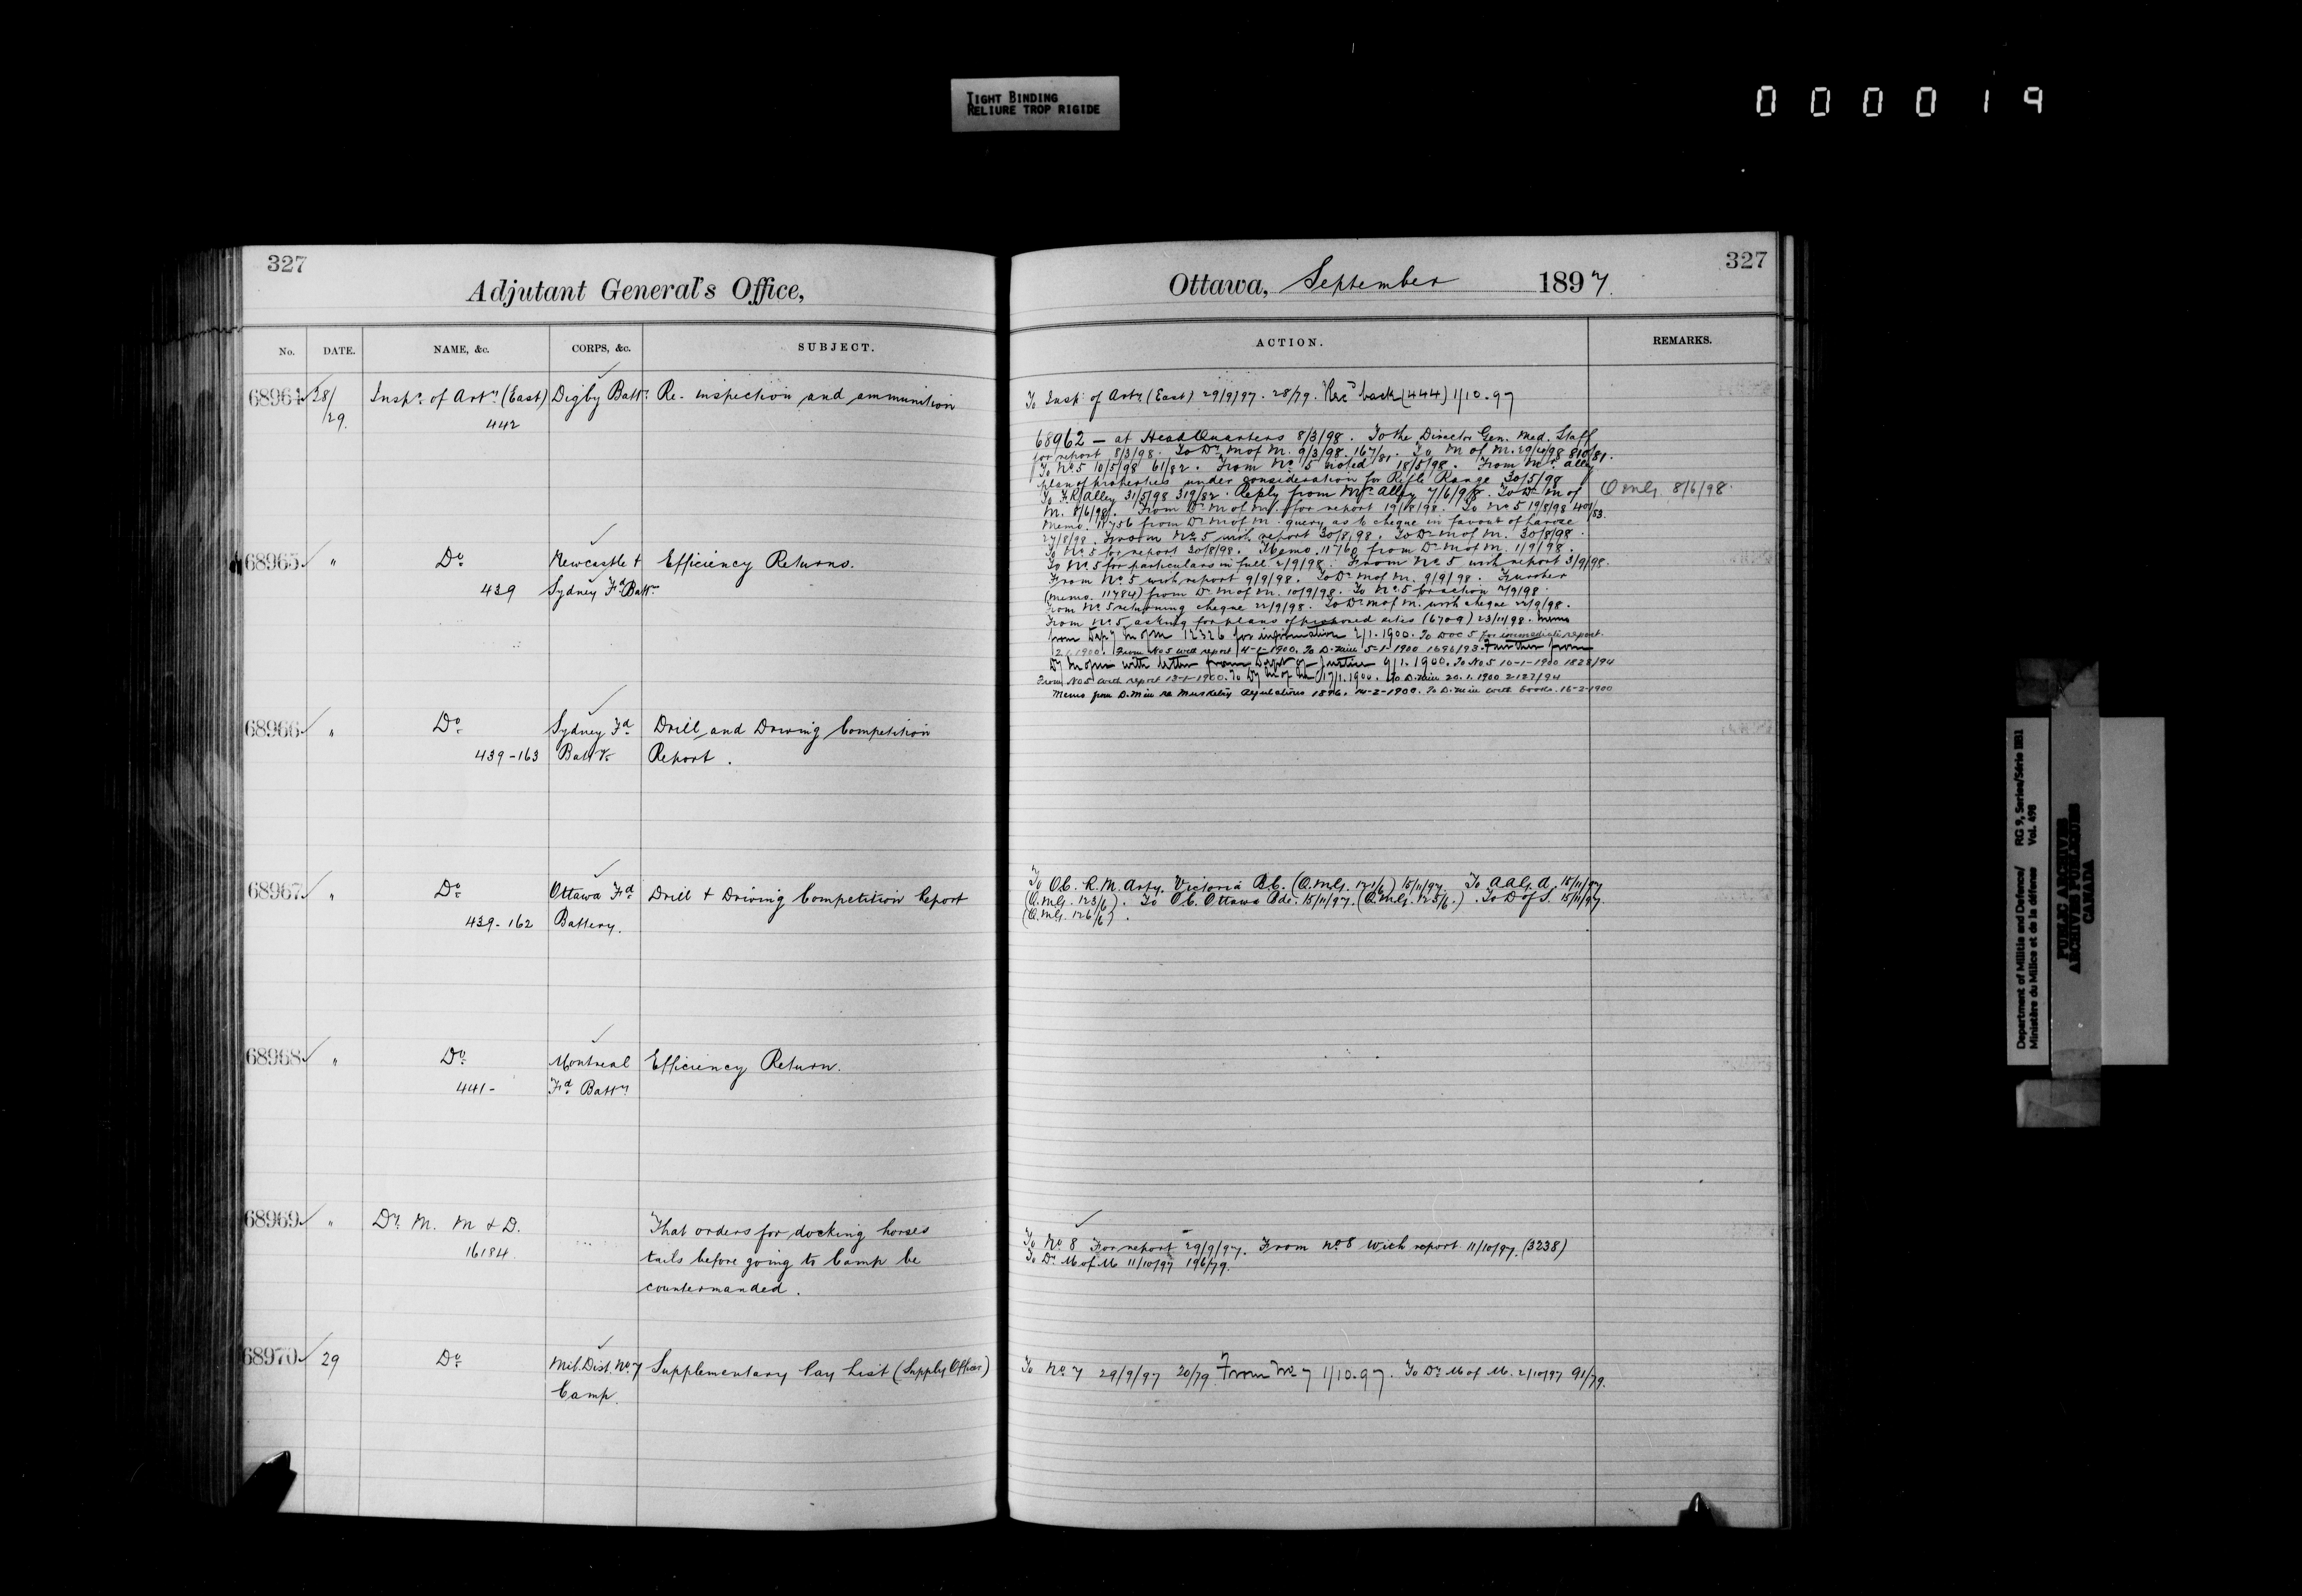 TIGHT BINDING
RELIURE TROP RIGIDE
000019
327
Adjutant General's Office,
No. DATE. NAME, &c. CORPS, &c. SUBJECT.
68964 28/29. Inspr. of Arty. (East) Digby Batty. Re. inspection and ammunition
442
68965 " Do Newcastle + Efficiency Returns.
439 Sydney Fd Batty.
68966 " Do Sydney Fd Drill and Driving Competition
439-163 Batty. Report.
68967 " Do Ottawa Fd Drill + Driving Competition Report
439-162 Battery.
68968 " Do Montreal Efficiency Return.
441- Fd Batty
68969 " Dy. M. M & D. That orders for docking horses
16184 tails before going to Camp be
countermanded.
68970 29 Do Mil. Dist. No. 7 Supplementary Pay List (Supply Officer)
Camp.
327
Ottawa, September 1897.
ACTION. REMARKS.
To Insp of Arty (East) 29/9/97. 28/79. Rec'd back (444) 1/10.97
68962 — at HeadQuarters 8/3/98. To the Director Gen. Med. Staff
for report 8/3/98. To Dr. M of M. 9/3/98. 167/81. To M of M. 29/4/98 810/81.
To No. 5 10/5/98 61/82. From No. 5 noted 18/5/98. From Mr. Alley
plan of properties under consideration for Rifle Range 30/5/98
To F.R. Alley 31/5/98 319/82. Reply from Mr. Alley 7/6/98. To Dr. M of
Q.M.G. 8/6/98.
M. 8/6/98. From Dr. M of M. for report 19/8/98. To No. 5 19/8/98 401/83.
Memo. 11756 from Dr. M of M. query as to cheque in favour of
27/8/98. From No. 5 with report 30/8/98. To Dr. M of M. 30/8/98.
To No. 5 for report 30/8/98. Memo. 11760 from Dr. M of M. 1/9/98.
To No. 5 for particulars in full 2/9/98. From No. 5 with report 3/9/98.
From No. 5 with report 9/9/98. To Dr. M of M. 9/9/98. Further
(memo. 11784) from Dr. M of M. 10/9/98. To No. 5 for action
From No. 5 returning cheque 22/9/98. To Dr. M of M. with cheque 22/9/98.
From No. 5 asking for plans of proposed sites (6709) 23/11/98. Memo
from Depy M of M 12326 for information 2/1.1900. To DOC 5 for immediate report.
2.1.1900. From No 5 with report 4-1-1900. To D. Min 5-1-1900 1696/93. Further from
Dy M of M with letter from Dept of Justice 9/1.1900. To No 5 10-1-1900 1828/94
From No 5 with report 13-1-1900. To Dy M of M 17/1.1900. To D. Min 20.1.1900 2127/94
Memo from D. Min re Musketry Regulations 1896. 14-2-1900. To D. Min with books. 16-2-1900
To O.C. R.M. Arty. Victoria B.C. (Q.M.G. 121/6) 15/11/97. To A.A.G.A. 15/11/97
(Q.M.G. 123/6). To O.C. Ottawa Bde. 15/11/97. (Q.M.G. 125/6.) To D of S. 15/11/97.
(Q.M.G. 126/6).
To No 8 For report 29/9/97. From No 8 with report 11/10/97. (3238)
To Dr. M of M 11/10/97 196/79.
To No. 7 29/9/97 20/79. From No 7 1/10.97. To Dr. M of M. 2/10/97 91/79.
Department of Militia and Defence/ RG 9, Series/Série IIB1
Ministère du Milice et de la défense Vol. 498
PUBLIC ARCHIVES
ARCHIVES PUBLIQUES
CANADA